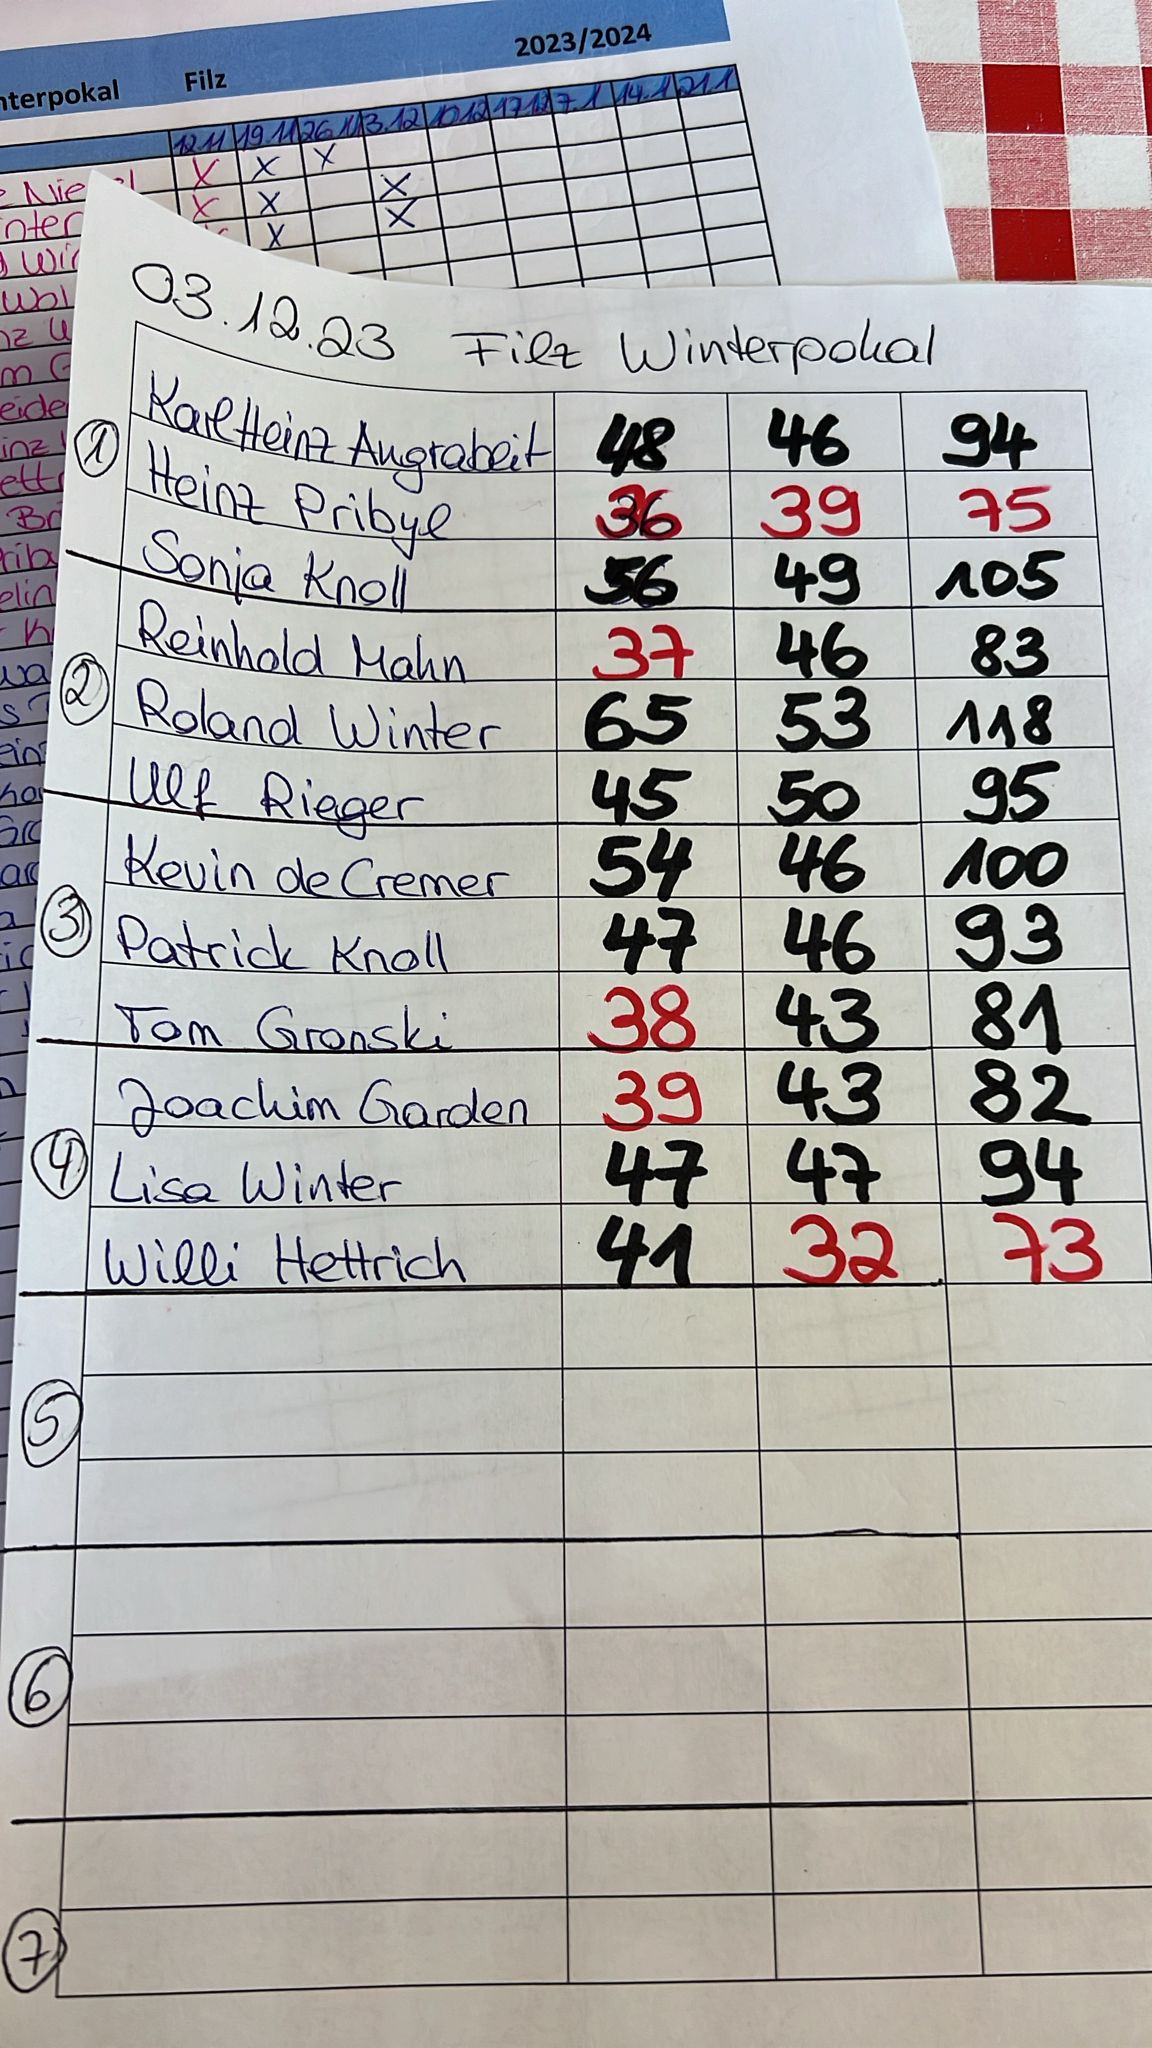 2023/2024
Filz
12.11 19.11 26.11 3.12 10.12 17.12 7.1 14.1 21.1
X X X
X X X
X X
03.12.23 Filz Winterpokal
① Karl Heinz Augrabeit 48 46 94
Heinz Pribyl 36 39 75
Sonja Knoll 56 49 105
② Reinhold Mahn 37 46 83
Roland Winter 65 53 118
Ulf Rieger 45 50 95
③ Kevin de Cremer 54 46 100
Patrick Knoll 47 46 93
Tom Gronski 38 43 81
④ Joachim Garden 39 43 82
Lisa Winter 47 47 94
Willi Hettrich 41 32 73
⑤
⑥
⑦